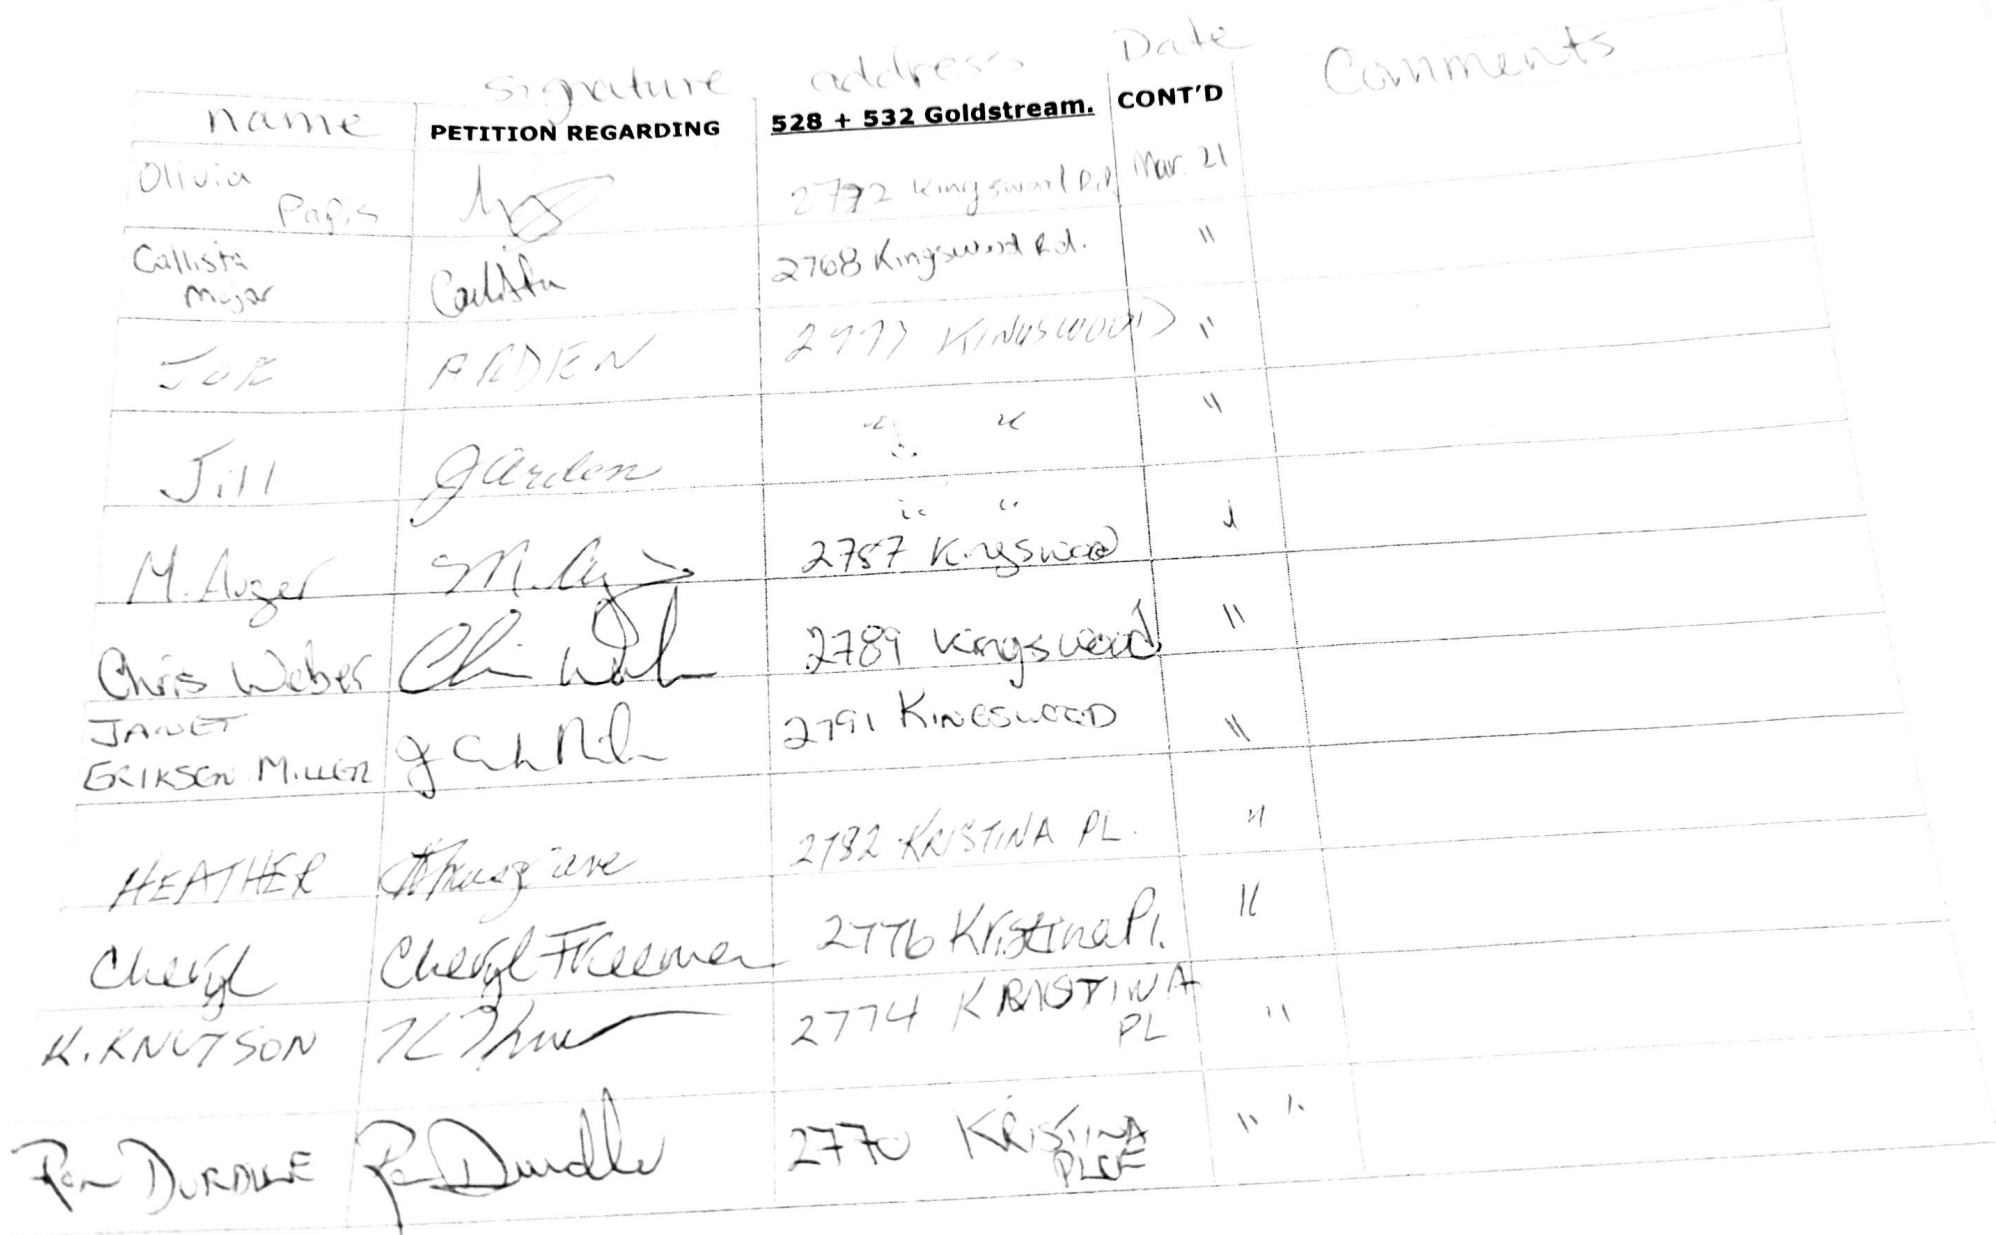 name signature address Date Comments
PETITION REGARDING 528 + 532 Goldstream. CONT'D
Olivia
Papis 2772 Kingswood Rd. Mar. 21
Callista
Major Callista 2768 Kingswood Rd. "
JOE ARDEN 2773 KINGSWOOD "
Jill J Arden " " "
" "
M. Auger M. Auger 2787 Kingswood "
Chris Weber Chris Weber 2789 Kingswood "
JANET
ERIKSEN MILLER 2791 KINGSWOOD "
HEATHER HMusgrave 2782 KRISTINA PL. "
Cheryl Cheryl Freeman 2776 Kristina Pl. "
K. KNUTSON 2774 KRISTINA
PL "
Ron DURDLE Ron Durdle 2770 KRISTINA
PLCE " "